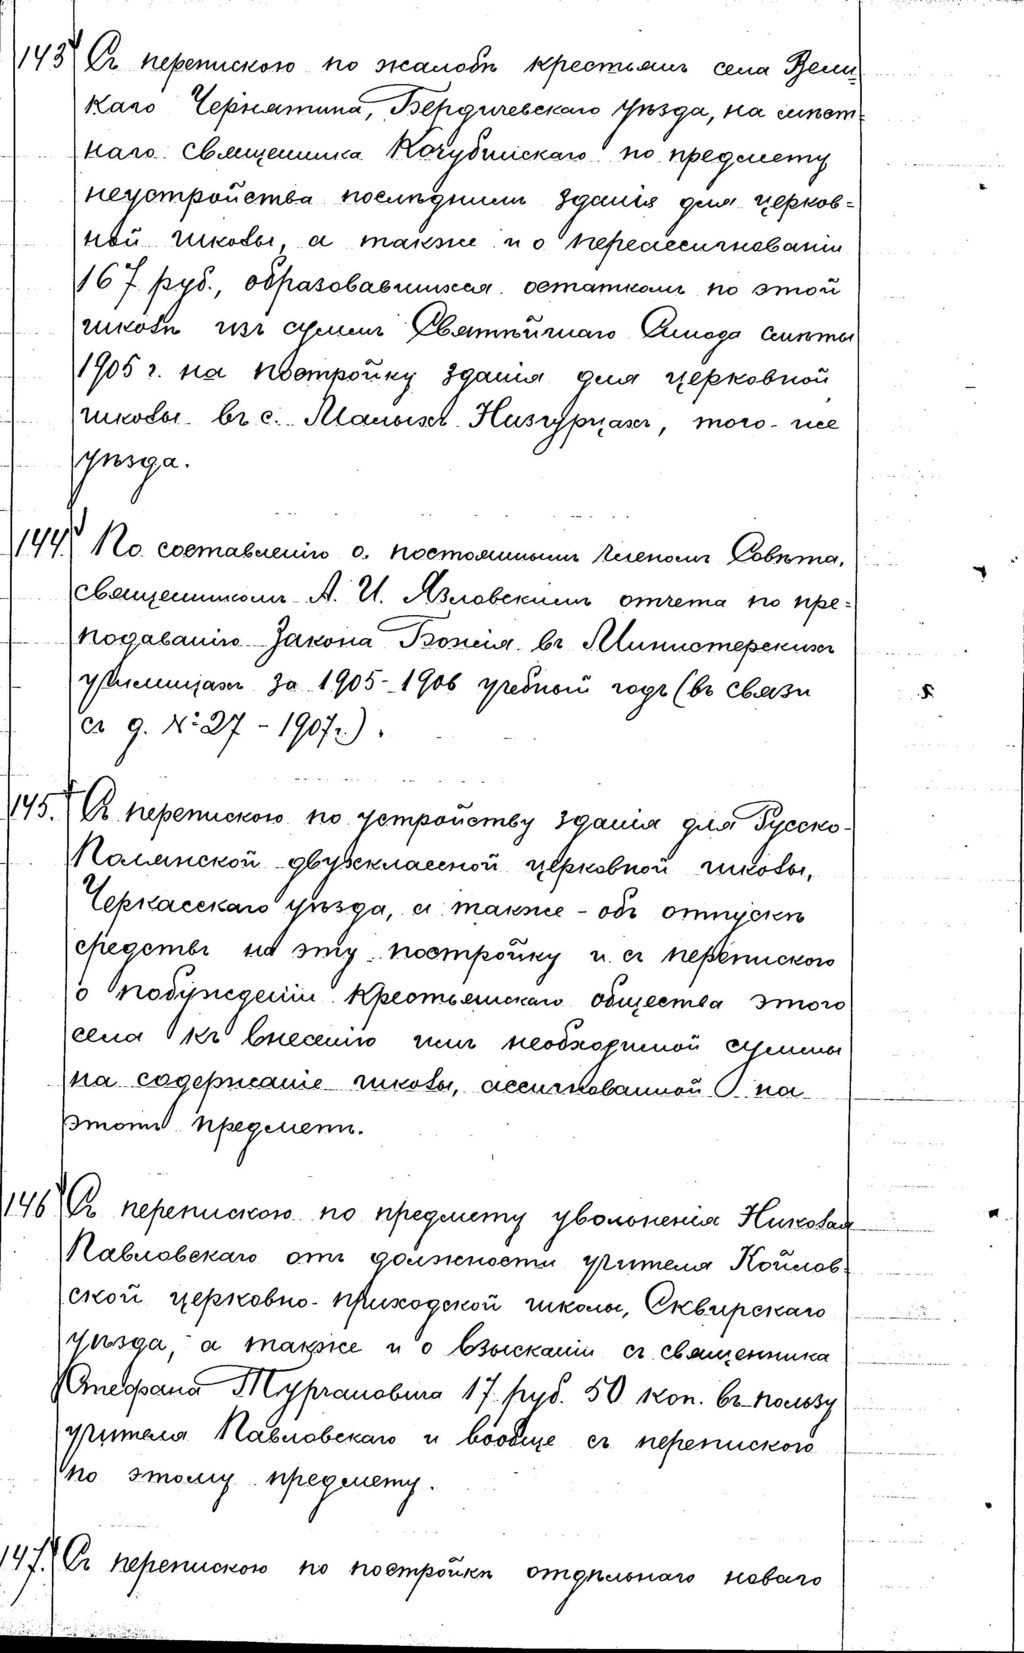 143 Съ перепискою по жалобѣ крестьянъ села Вели-
каго Чернятина, Бердичевскаго уѣзда, на мѣст-
наго священника Кочубинскаго по предмету
неустройства послѣднимъ зданія для церков=
ной школы, а также и о переассигнованіи
167 руб., образовавшихся остаткомъ по этой
школѣ изъ суммъ Святѣйшаго Синода смѣты
1905 г. на постройку зданія для церковной
школы въ с. Малыхъ Низгурцахъ, того-же
уѣзда.
144. По составленію о. постояннымъ членомъ Совѣта,
священникомъ А. И. Язловскимъ отчета по пре=
подаванію Закона Божія въ Министерскихъ
училищахъ за 1905-1906 учебный годъ (въ связи
съ д. №27 - 1907г.).
145. Съ перепискою по устройству зданія для Русско-
Полянской двухклассной церковной школы,
Черкасскаго уѣзда, а также - объ отпускѣ
средствъ на эту постройку и съ перепискою
о побужденіи крестьянскаго общества этого
села къ внесенію имъ необходимой суммы
на содержаніе школы, ассигнованной на
этотъ предметъ.
146 Съ перепискою по предмету увольненія Николая
Павловскаго отъ должности учителя Койлов-
ской церковно-приходской школы, Сквирскаго
уѣзда, а также и о взысканіи съ священника
Стефана Турчановича 17 руб. 50 коп. въ пользу
учителя Павловскаго и вообще съ перепискою
по этому предмету.
147. Съ перепискою по постройкѣ отдѣльнаго новаго